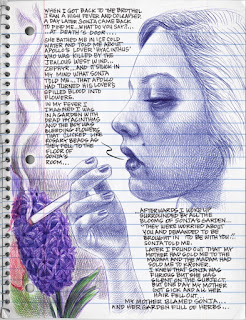 WHEN I GOT BACK TO THE BROTHEL
I RAN A HIGH FEVER AND COLLAPSED
A DAY LATER SONJA CAME BACK
TO FIND ME... WHAT DO YOU SAY?...
AT DEATH'S DOOR...
SHE BATHED ME IN ICE COLD
WATER AND TOLD ME ABOUT
APOLLO'S LOVER 'HYACINTHUS'
WHO WAS KILLED BY THE
JEALOUS WEST WIND...
ZEPHYR... AND IT STUCK IN
MY MIND WHAT SONJA
TOLD ME... THAT APOLLO
HAD TURNED HIS LOVER'S
SPILLED BLOOD INTO
FLOWERS.
IN MY FEVER I
IMAGINED I WAS
IN A GARDEN WITH
DEAD HYACINTHUS
AND THE BOY WAS
BLEEDING FLOWERS
THAT CLICKED LIKE
ROSARY BEADS AS
THEY FELL TO THE
FLOOR OF
SONJA'S
ROOM...
AFTERWARDS I WOKE UP
SURROUNDED BY ALL THE
BLOOMS OF SONJA'S GARDEN...
"THEY WERE WORRIED ABOUT
YOU AND DEMANDED TO BE
BROUGHT IN TO BE WITH YOU"
SONJA TOLD ME.
LATER I FOUND OUT THAT MY
MOTHER HAD SOLD ME TO THE
MADAM AND THE MADAM HAD
SOLD ME TO
I KNEW THAT SONJA WAS
FURIOUS BUT SHE WAS
SILENT ON THE SUBJECT.
BUT ONE DAY MY MOTHER
GOT SICK AND ALL HER
HAIR FELL OUT.
MY MOTHER BLAMED SONJA...
AND HER GARDEN FULL OF HERBS...